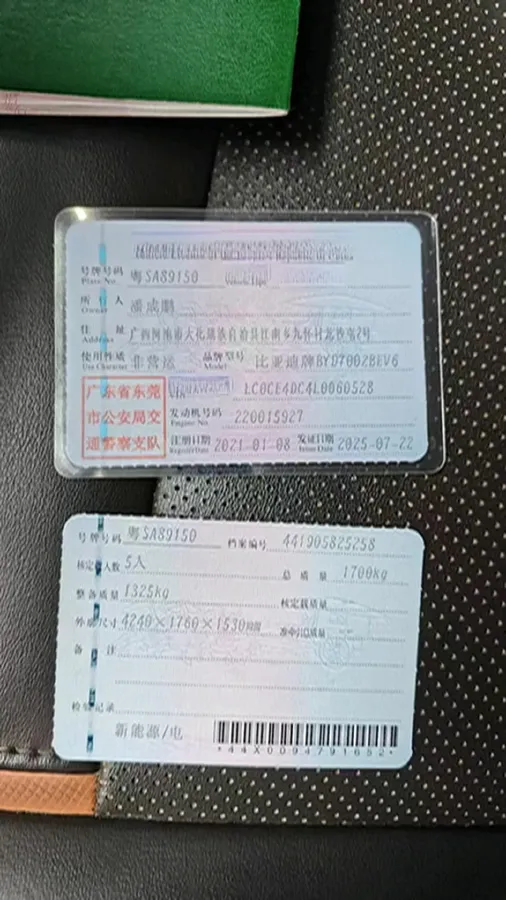 号牌号码 粤SA89150
Plate No. Vehicle Type
所有人 潘成鹏
Owner
住址 广西河池市大化瑶族自治县江南乡九怀村北
Address
使用性质 非营运 品牌型号 比亚迪牌BYD7002BEV6
Use Character Model
广东省东莞
市公安局交
通警察支队
VIN LC0CE4DC4L0060528
发动机号码 220015927
Engine No.
注册日期 2021-01-08 发证日期 2025-07-22
Register Date Issue Date
号牌号码 粤SA89150 档案编号 441905825258
核定人数 5人 总质量 1700kg
整备质量 1325kg 核定载质量
外廓尺寸 4240×1760×1530 准牵引总质量
备注
检验记录
新能源/电
*44X0094791652*